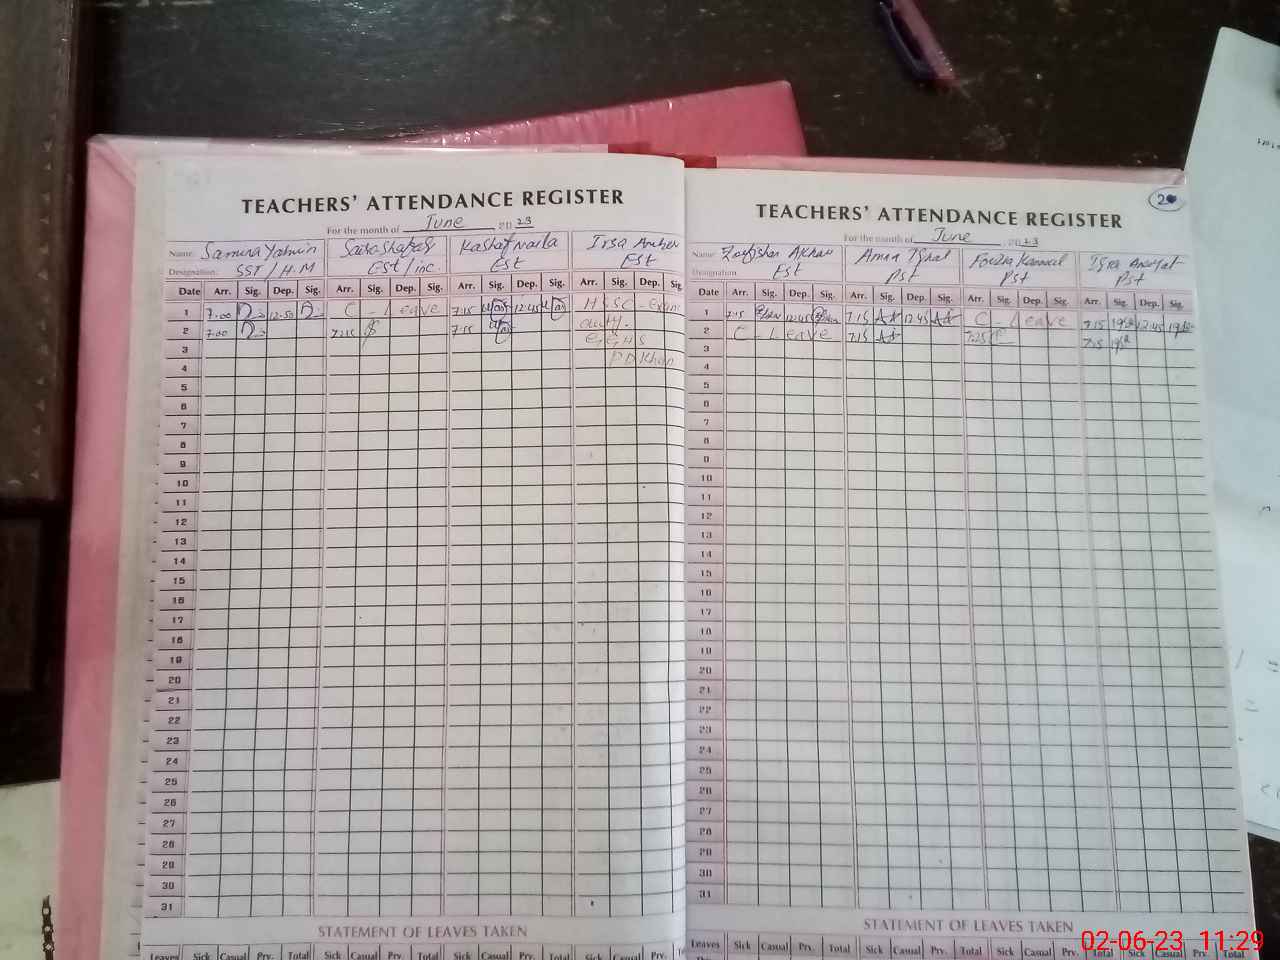 TEACHERS' ATTENDANCE REGISTER
For the month of June 20 23
Name: Samina Yasmin Kashaf Naila Irsa Amber
Designation: SST / H.M EST / inc. EST EST
Date Arr. Sig. Dep. Sig. Arr. Sig. Dep. Sig. Arr. Sig. Dep. Sig. Arr. Sig. Dep. Sig.
1 7:00 12:50 C - Leave 7:15 12:45 HSSC - Exam
2 7:00 7:15 7:15 duty.
3 G,G,H,S
4 PD Khan
5
6
7
8
9
10
11
12
13
14
15
16
17
18
19
20
21
22
23
24
25
26
27
28
29
30
31
STATEMENT OF LEAVES TAKEN
Leaves Sick Casual Prv. Total Sick Casual Prv. Total Sick Casual Prv. Total Sick Casual Prv.
2
TEACHERS' ATTENDANCE REGISTER
For the month of June 2023
Name: Amna Iqbal Fouzia Kanwal Iqra
Designation EST PST PST PST
Date Arr. Sig. Dep. Sig. Arr. Sig. Dep. Sig. Arr. Sig. Dep. Sig. Arr. Sig. Dep. Sig.
1 7:15 12:45 7:15 12:45 C - Leave 7:15 12:45
2 C - Leave 7:15 7:25 7:15
3
4
5
6
7
8
9
10
11
12
13
14
15
16
17
18
19
20
21
22
23
24
25
26
27
28
29
30
31
STATEMENT OF LEAVES TAKEN
Leaves Sick Casual Prv. Total Sick Casual Prv. Total Sick Casual Prv. Total Sick Casual Prv. Total
02-06-23 11:29